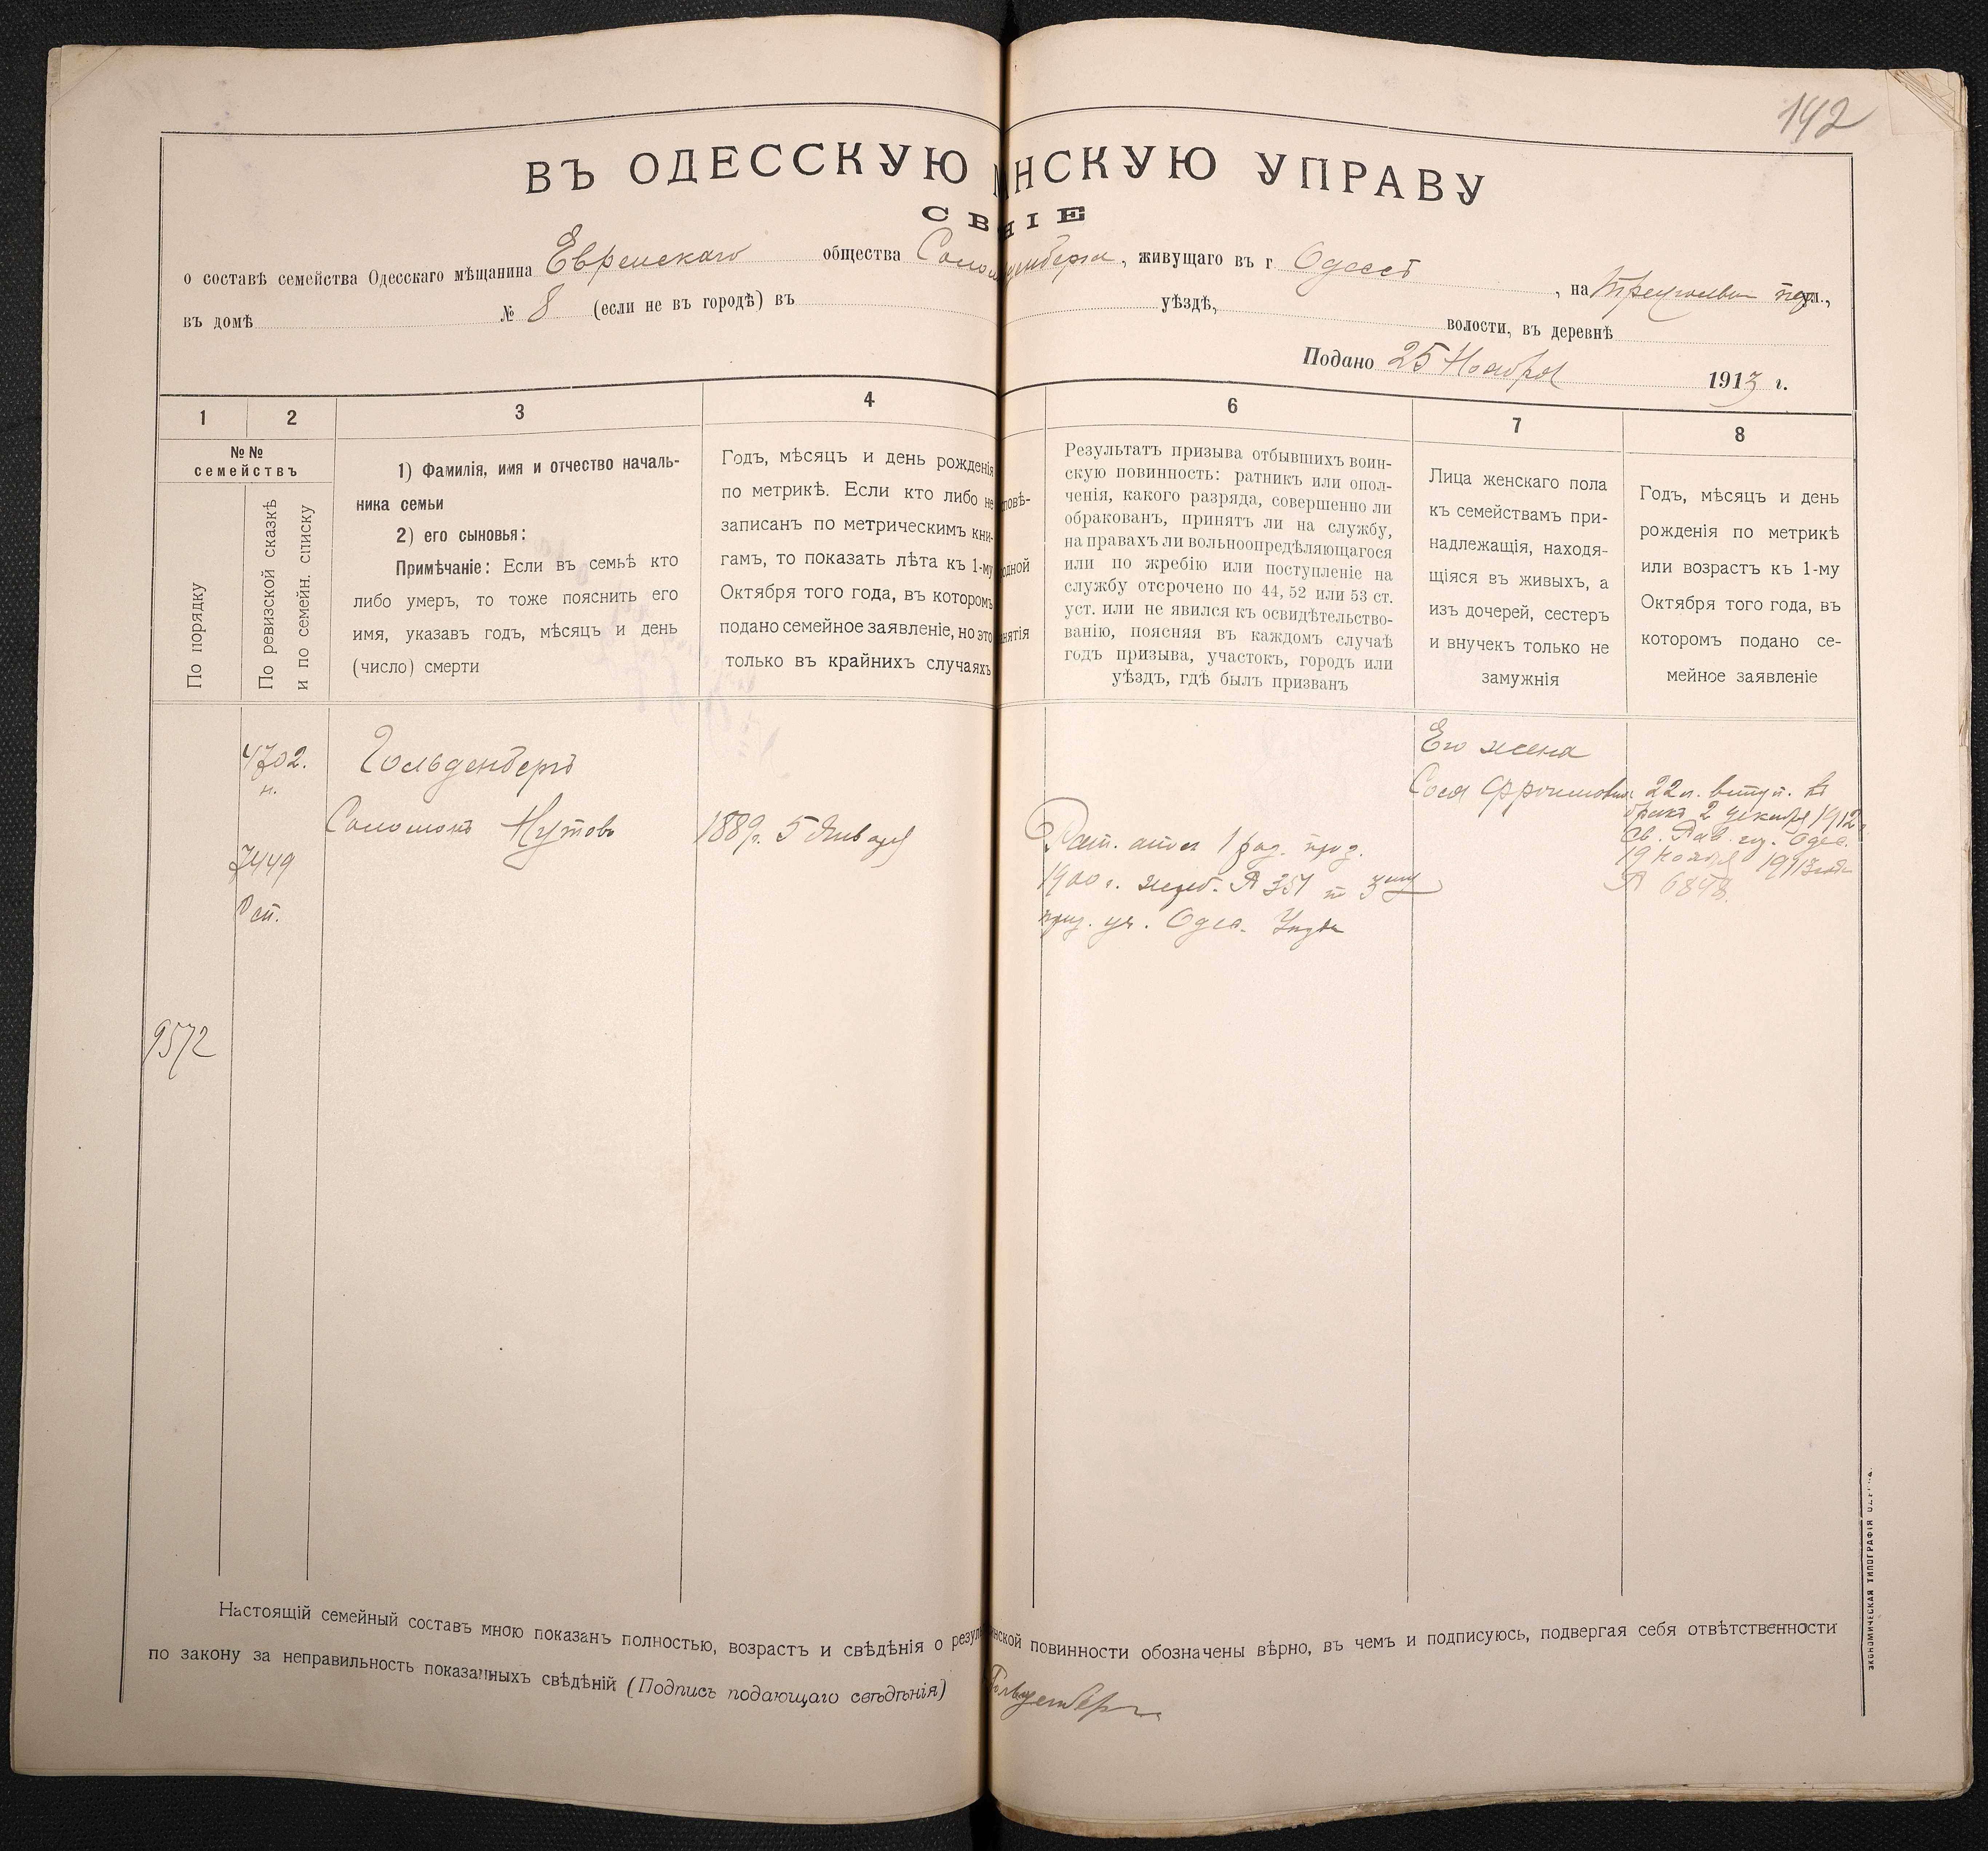 142
ВЪ ОДЕССКУЮ НСКУЮ УПРАВУ
СВ НІЕ
о составѣ семейства Одесскаго мѣщанина Еврейскаго общества Солом денберга, живущаго въ г Одессѣ, на ул.,
въ домѣ № 8 (если не въ городѣ) въ уѣздѣ, волости, въ деревнѣ
Подано 25 Ноября 1913 г.
1 2 3 4 6 7 8
№№
семействъ
По порядку
По ревизской сказкѣ
и по семейн. списку
1) Фамилія, имя и отчество началь-
ника семьи
2) его сыновья:
Примѣчаніе: Если въ семьѣ кто
либо умеръ, то тоже пояснить его
имя, указавъ годъ, мѣсяцъ и день
(число) смерти
Годъ, мѣсяцъ и день рожденія
по метрикѣ. Если кто либо не
записанъ по метрическимъ кни-
гамъ, то показать лѣта къ 1-му
Октября того года, въ которомъ
подано семейное заявленіе, но это
только въ крайнихъ случаяхъ
повѣ-
одной
нятія
Результатъ призыва отбывшихъ воин-
скую повинность: ратникъ или опол-
ченія, какого разряда, совершенно ли
обракованъ, принятъ ли на службу,
на правахъ ли вольноопредѣляющагося
или по жребію или поступленіе на
службу отсрочено по 44, 52 или 53 ст.
уст. или не явился къ освидѣтельство-
ванію, поясняя въ каждомъ случаѣ
годъ призыва, участокъ, городъ или
уѣздъ, гдѣ былъ призванъ
Лица женскаго пола
къ семействамъ при-
надлежащія, находя-
щіяся въ живыхъ, а
изъ дочерей, сестеръ
и внучекъ только не
замужнія
Годъ, мѣсяцъ и день
рожденія по метрикѣ
или возрастъ къ 1-му
Октября того года, въ
которомъ подано се-
мейное заявленіе
4702.
н.
7449
9572
Гольденбергъ
Соломонъ Нутовъ
1889 г. 5 Января
Рат. 1 раз.
1900 г. жереб. № 351 по 3
приз. уч. Одес.
Его жена
Сося
22 л. вступ. въ
бракъ 2 декабря 1912
Св. Рав. гор. Одес.
19 Ноября 1913
№ 6848.
Настоящій семейный составъ мною показанъ полностью, возрастъ и свѣдѣнія о резул инской повинности обозначены вѣрно, въ чемъ и подписуюсь, подвергая себя отвѣтственности
по закону за неправильность показанныхъ свѣдѣній (Подпись подающаго свѣдѣнія) Гольденберг
ЭКОНОМИЧЕСКАЯ ТИПОГРАФІЯ